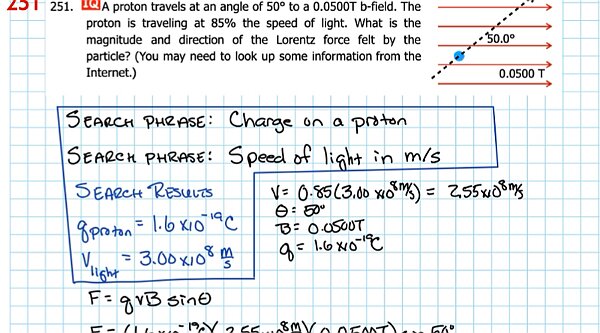 251 251. IQ A proton travels at an angle of 50° to a 0.0500T b-field. The
proton is traveling at 85% the speed of light. What is the
magnitude and direction of the Lorentz force felt by the
particle? (You may need to look up some information from the
Internet.)
50.0°
0.0500 T
SEARCH PHRASE: Charge on a proton
SEARCH PHRASE: Speed of light in m/s
SEARCH RESULTS
q proton = 1.6 x10^-19 C
V light = 3.00 x10^8 m/s
V = 0.85(3.00 x10^8 m/s) = 2.55x10^8 m/s
θ = 50°
B = 0.0500T
q = 1.6 x10^-19 C
F = qvB sinθ